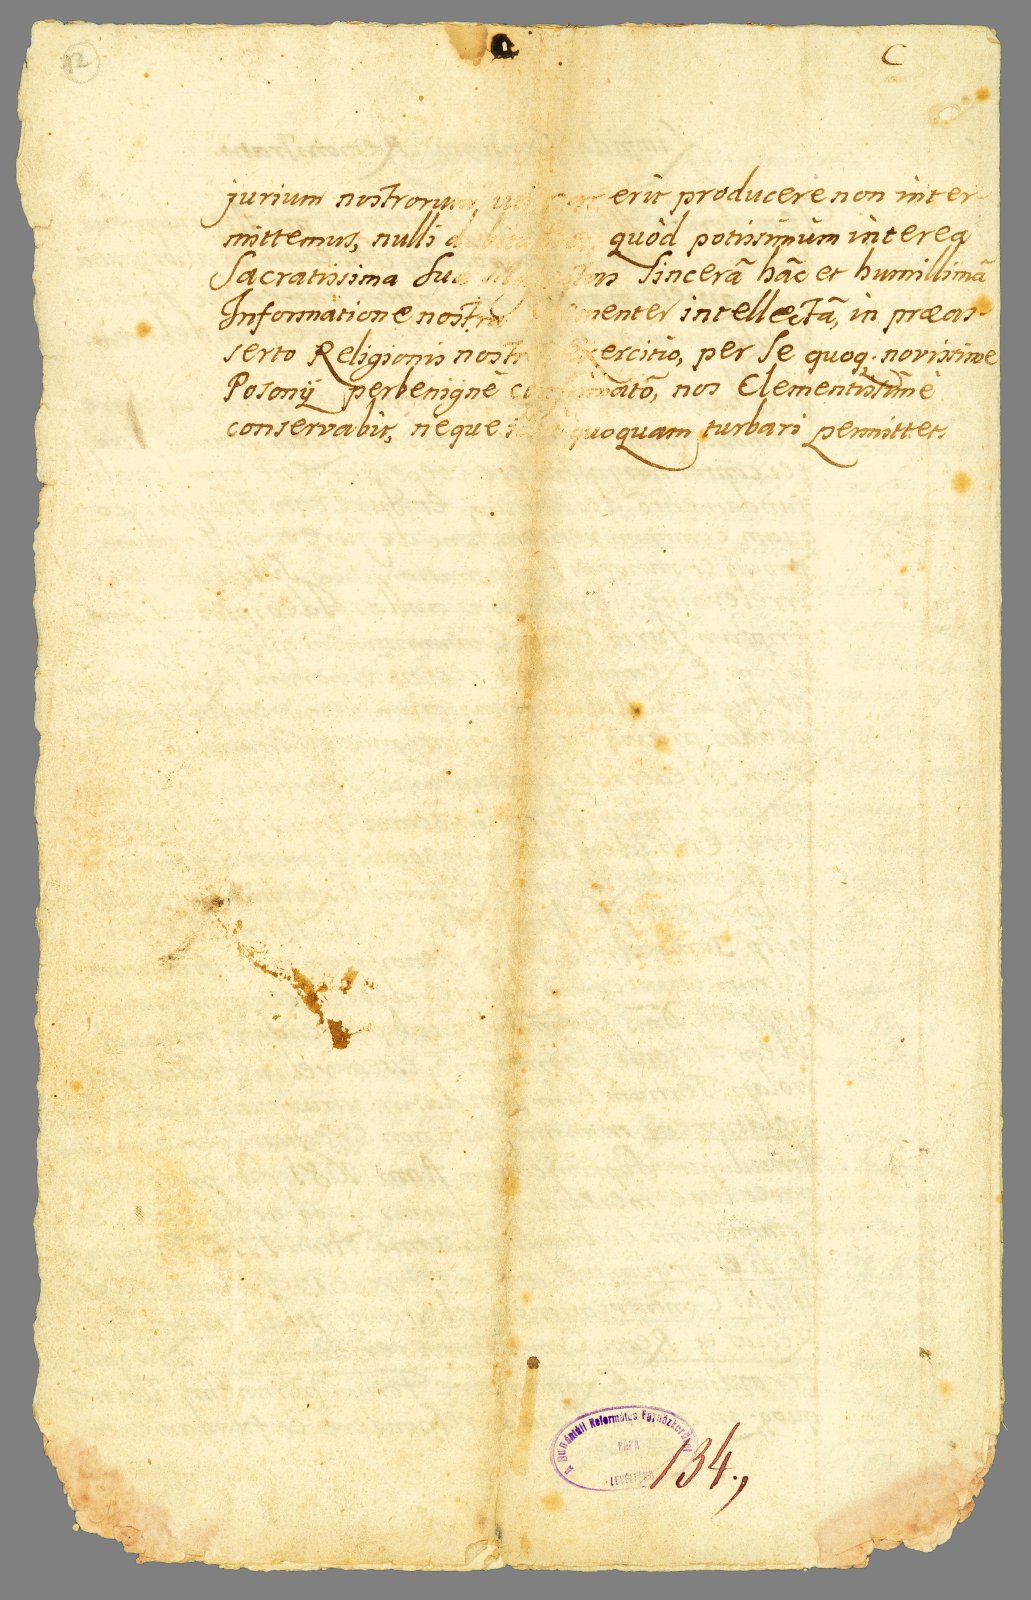 12
C
jurium nostrorum, erit producere non inter-
mittemus, nulli quòd potissimùm interea
Sacratissima Sua Sincerã hãc et humillimã
Informatione nostra intellectã, in præas-
serto Religionis nostræ Exercitio, per se quoq. novissime
Posonij perbenignè confirmatõ, nos Clementissimè
conservabit, neque quoquam turbari permittet.
A Dunántúli Református Egyházkerület
PÁPA
LEVÉLTÁRA
134.,